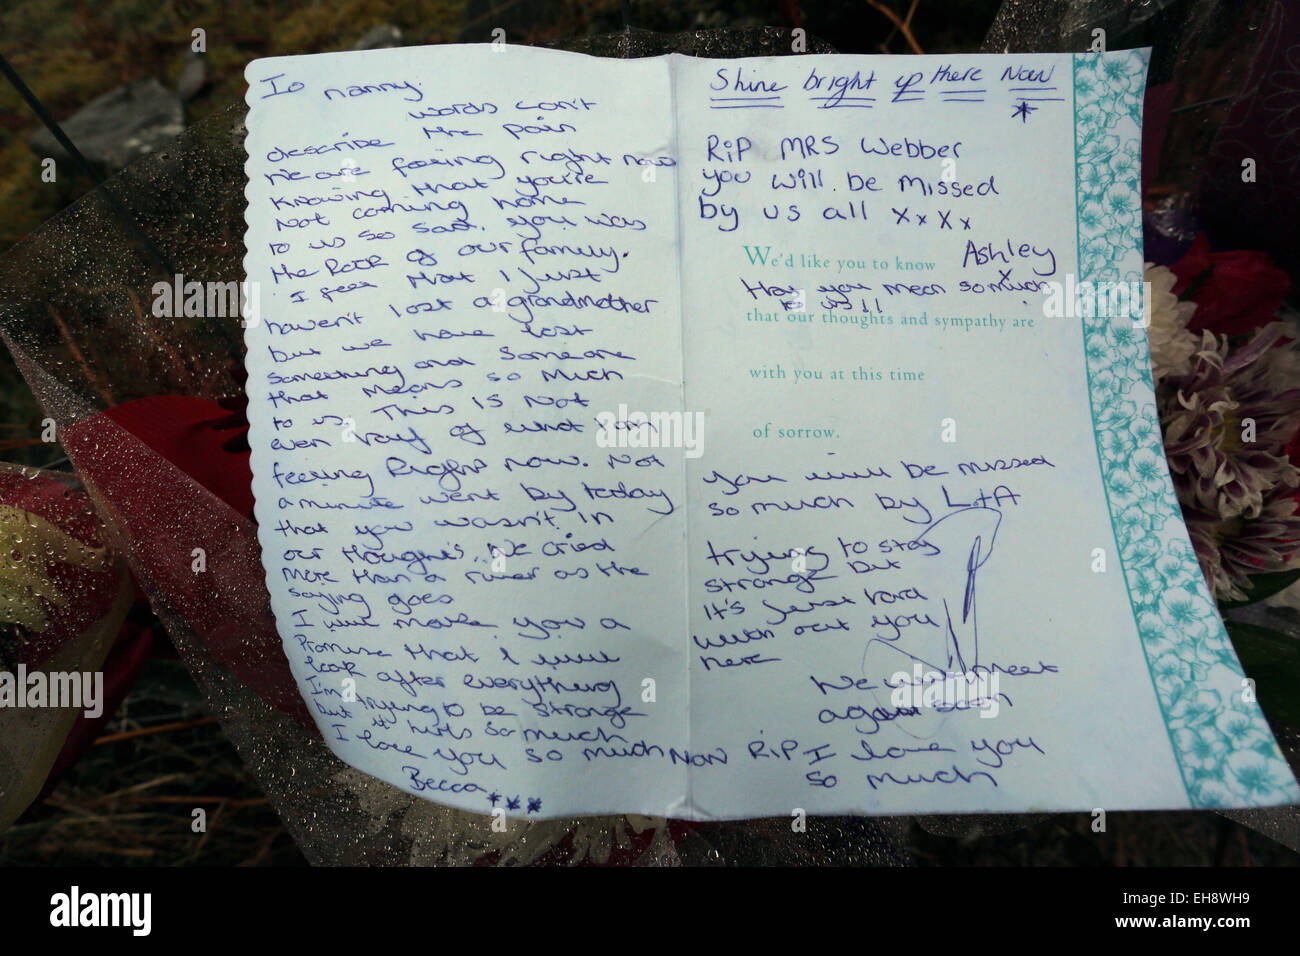 To nanny
words con't
describe the pain
We are facing right now
Knowing that you're
Not coming home
to us so sad. you was
the Rock of our family.
I feel that I just
haven't lost a grandmother
but we have lost
something and someone
that means so much
to us. This is Not
even half of what I am
feeling Right now. Not
a minute went by today
that you wasn't in
our thoughts. We cried
more than a river as the
saying goes
I will make you a
Promise that I will
look after everything
I'm trying to be stronge
but it hurts so much
I love you so much Nan RIP
Becca ***
Shine bright up there Nan
*
RiP MRS Webber
you will be missed
by us all xxxx
We'd like you to know
Ashley
x
you mean so much
to us!!
that our thoughts and sympathy are
with you at this time
of sorrow.
you will be missed
so much by L+A
trying to stay
stronge but
it's just hard
with out you
here
We will meet
again soon
I love you
so much
a
alamy
alamy stock photo
EH8WH9
www.alamy.com